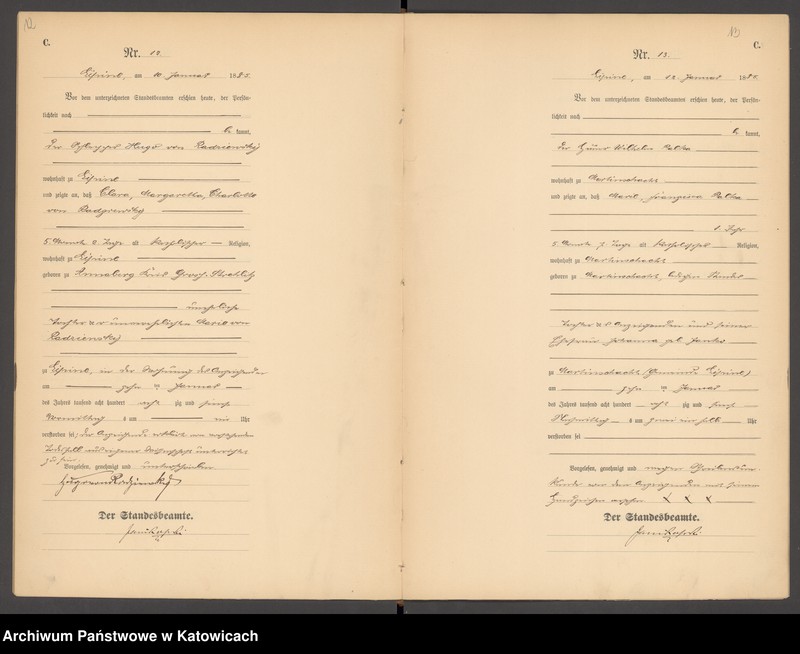 12
C.
Nr. 12.
am 10 Januar 1885.
Vor dem unterzeichneten Standesbeamten erschien heute, der Persön-
lichkeit nach
be kannt,
der Hugo von Radziewsky
wohnhaft zu
und zeigte an, daß Clara, Margaretha, Charlotte
von Radziewsky
5 Monate 2 Tage alt katholischer Religion,
wohnhaft zu
geboren zu Annaberg Kreis Groß Strehlitz
uneheliche
Tochter der unverehelichten Marie von
Radziewsky
zu in der Wohnung des Anzeigenden
am zehn ten Januar
des Jahres tausend acht hundert acht zig und fünf
Vormittag s um Uhr
verstorben sei; der Anzeigende erklärt
Todesfall aus eigener Wissenschaft unterrichtet
zu sein.
Vorgelesen, genehmigt und unterschrieben
Hugo von Radziewsky
Der Standesbeamte.
13
C.
Nr. 13.
am 12 Januar 1885.
Vor dem unterzeichneten Standesbeamten erschien heute, der Persön-
lichkeit nach
be kannt,
der Wilhelm Palka
wohnhaft zu Martinschacht
und zeigte an, daß Franziska Palka
1 Jahr
5 Monate 7 Tage alt katholischer Religion,
wohnhaft zu Martinschacht
geboren zu Martinschacht, ledigen Standes
Tochter des Anzeigenden und seiner
Ehefrau Johanna geb
zu Martinschacht (Gemeinde
am zehn ten Januar
des Jahres tausend acht hundert acht zig und fünf
Nachmittag s um ein halb Uhr
verstorben sei
Vorgelesen, genehmigt und wegen Schreibensun-
kunde von dem Anzeigenden mit seinem
Handzeichen versehen X X X
Der Standesbeamte.
Archiwum Państwowe w Katowicach